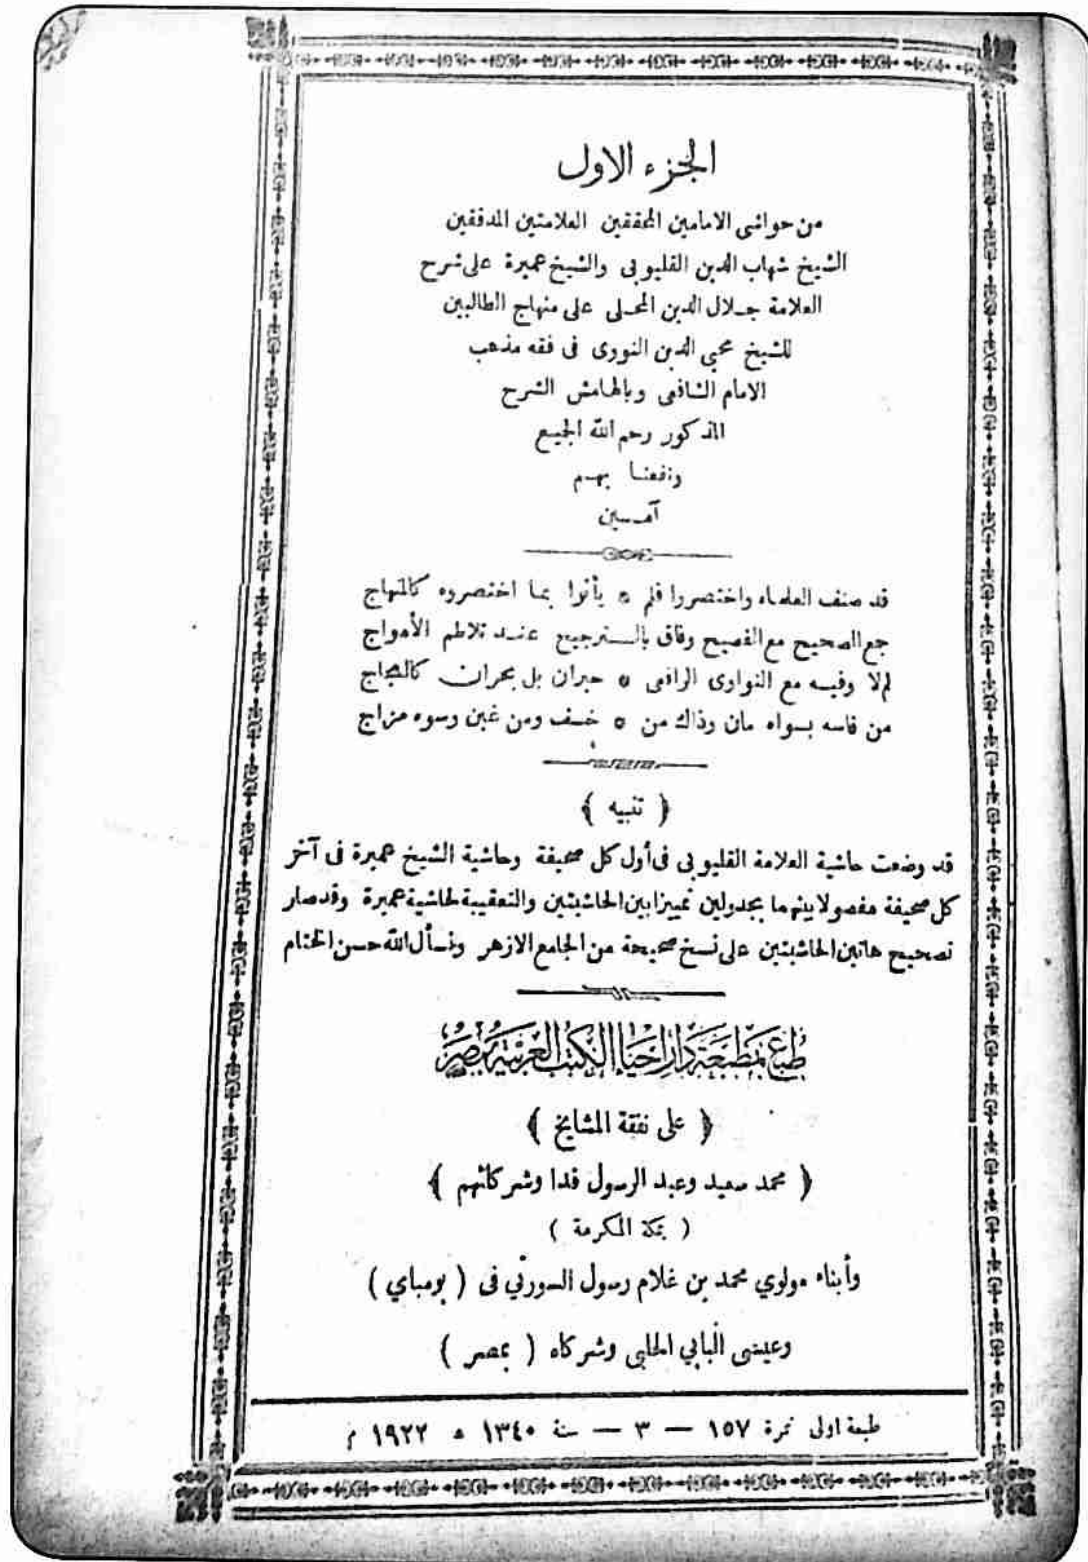 الجزء الاول
من حواشى الامامين المحققين العلامتين المدققين
الشيخ شهاب الدين القليوبى والشيخ عميرة على شرح
العلامة جلال الدين المحلى على منهاج الطالبين
للشيخ محيي الدين النووى فى فقه مذهب
الامام الشافعى وبالهامش الشرح
المذكور رحم الله الجميع
ونفعنا بهم
آمين
قد صنف العلماء واختصروا فلم * يأتوا بما اختصروه كالمنهاج
جمع الصحيح مع الفصيح وفاق بالترجيح عند تلاطم الأمواج
لم لا وفيه مع النواوى الرافعى * حبران بل بحران كالعجاج
من قاسه بسواه مان وذاك من * خسف ومن غبن وسوء مزاج
﴿ تنبيه ﴾
قد وضعت حاشية العلامة القليوبى فى أول كل صحيفة وحاشية الشيخ عميرة فى آخر
كل صحيفة مفصولا بينهما بجدولين تمييزا بين الحاشيتين والتعقيبة لحاشية عميرة وقد صار
تصحيح هاتين الحاشيتين على نسخ صحيحة من الجامع الازهر ونسأل الله حسن الختام
طبع بمطبعة دار إحياء الكتب العربية بمصر
﴿ على نفقة المشايخ ﴾
﴿ محمد سعيد وعبد الرسول فدا وشركائهم ﴾
( بمكة المكرمة )
وأبناء مولوي محمد بن غلام رسول السورتي فى ( بومباي )
وعيسى البابي الحلبى وشركاه ( بمصر )
طبعة اولى نمرة ١٥٧ — ٣ — سنة ١٣٤٠ ه ١٩٢٢ م